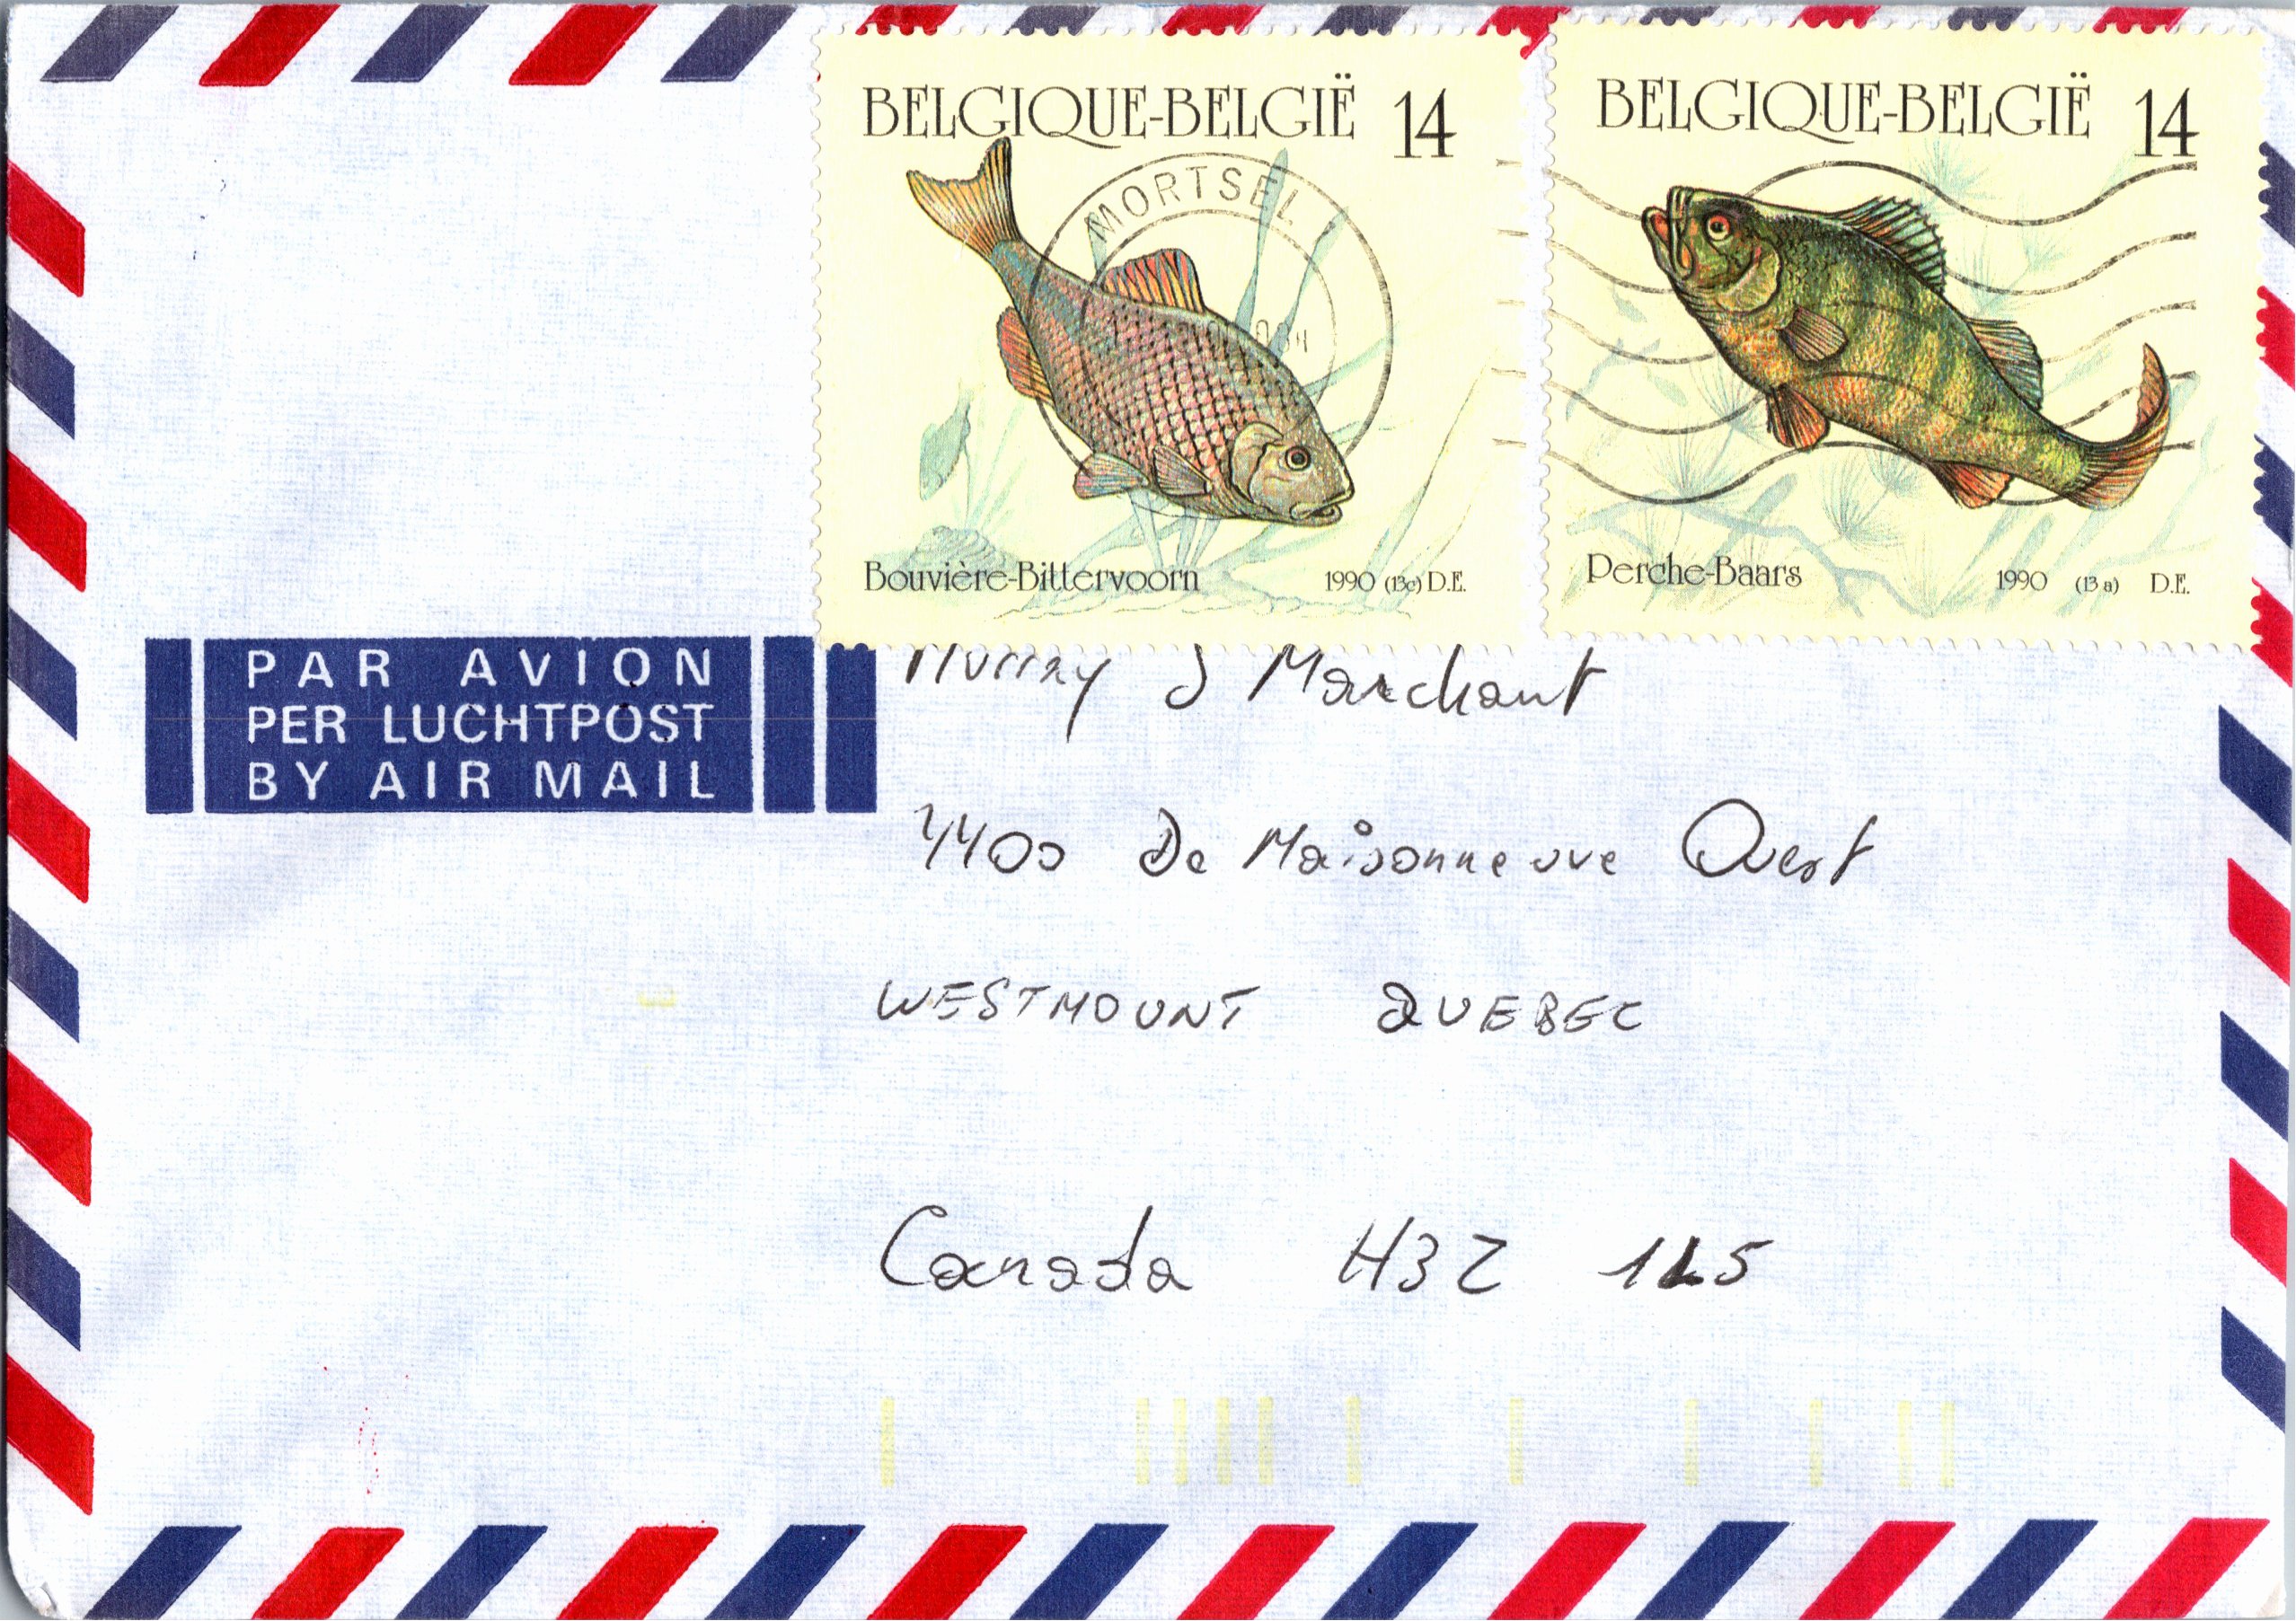 BELGIQUE-BELGIË 14
MORTSEL
Bouvière-Bittervoorn 1990 (13c) D.E.
BELGIQUE-BELGIË 14
Perche-Baars 1990 (13a) D.E.
PAR AVION
PER LUCHTPOST
BY AIR MAIL
Murray J Marchant
4400 De Maisonneuve Ouest
WESTMOUNT QUEBEC
Canada H3Z 1L5